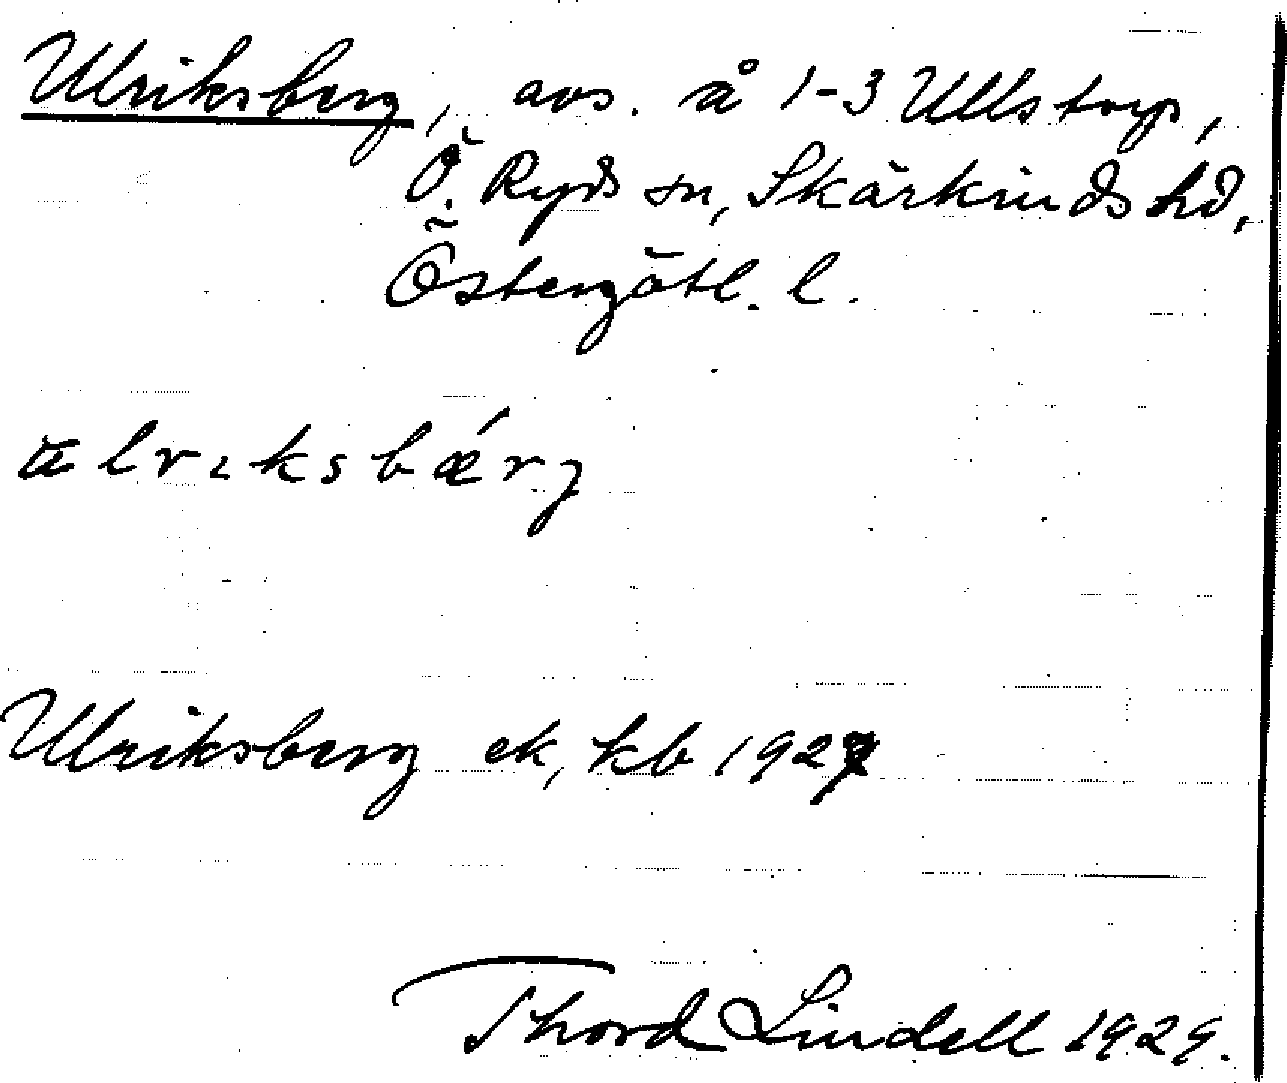 Ulriksberg, avs. å 1-3 Ullstorp,
Ö. Ryds sn, Skärkinds hd,
Östergötl. l.
ulrɩksbǽrj
Ulriksberg ek, kb 1927
Thord Lindell 1929.